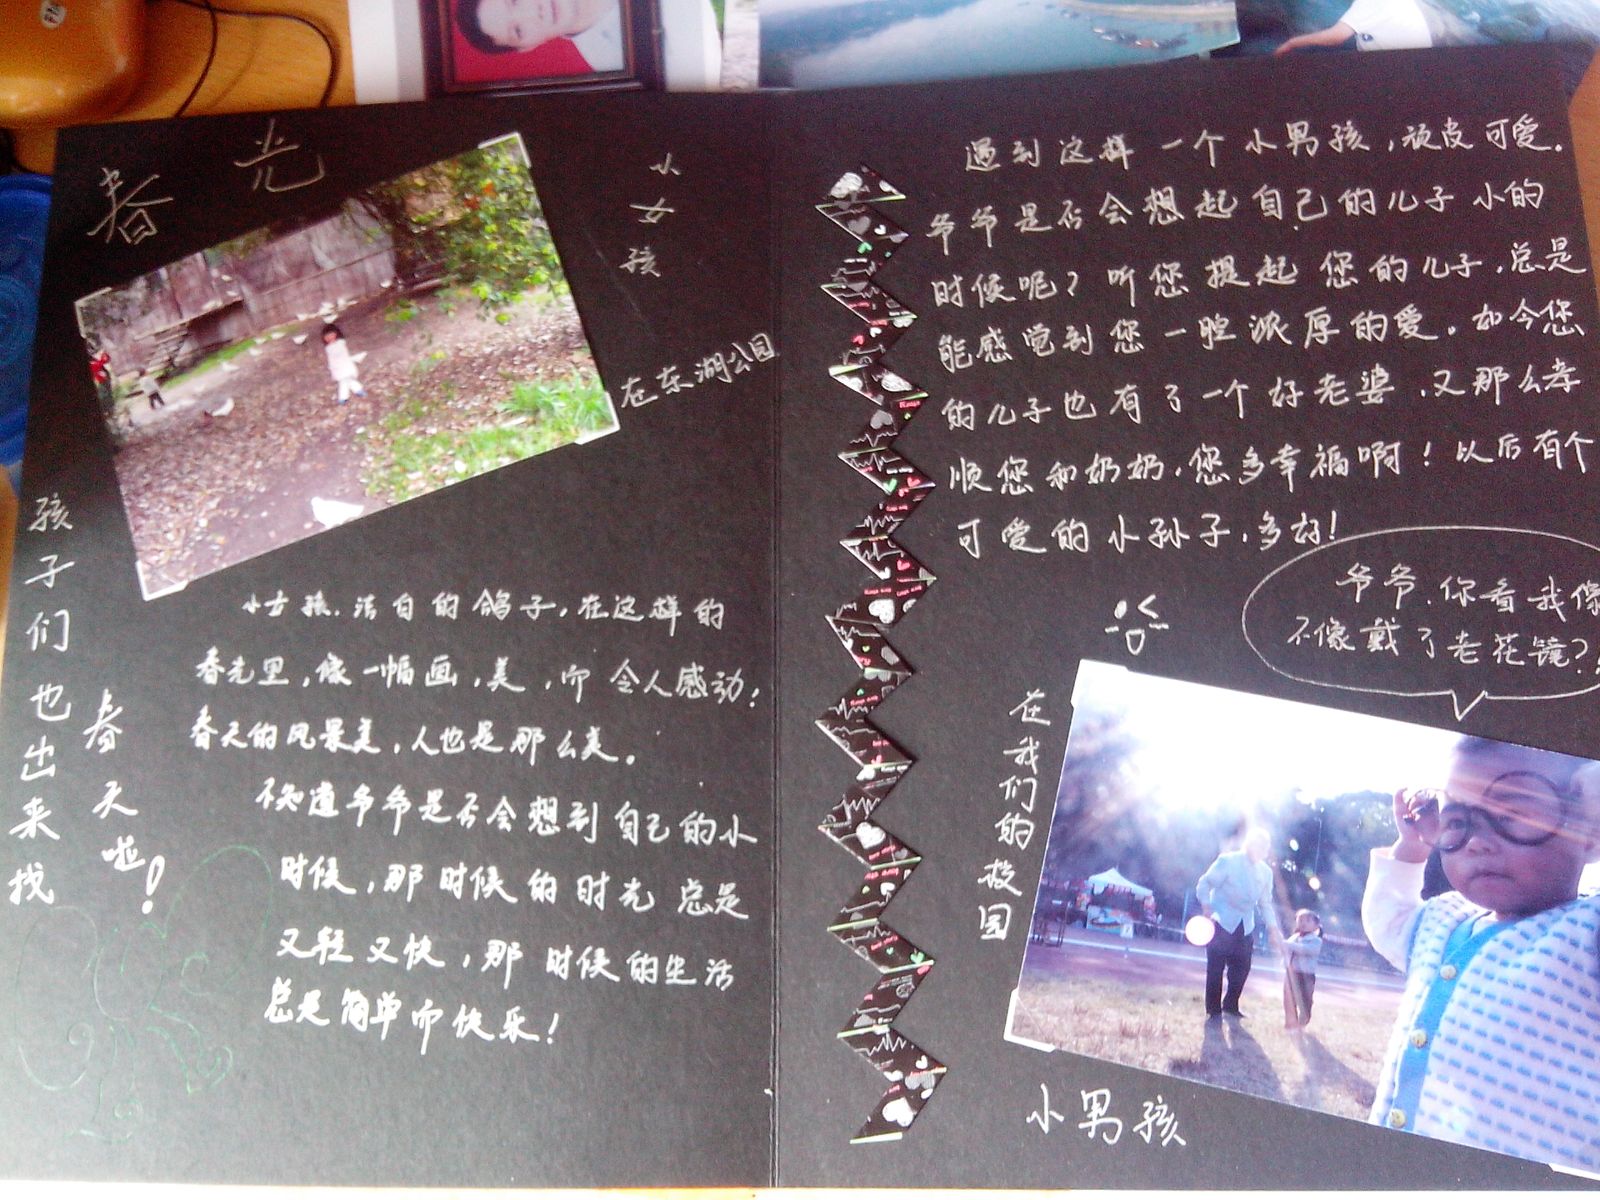 春光
小女孩
在东湖公园
孩子们也出来找
春天啦!
小女孩,洁白的鸽子,在这样的
春光里,像一幅画,美,而令人感动;
春天的风景美,人也是那么美。
不知道爷爷是否会想到自己的小
时候,那时候的时光总是
又轻又快,那时候的生活
总是简单而快乐!
遇到这样一个小男孩,顽皮可爱.
爷爷是否会想起自己的儿子小的
时候呢?听您提起您的儿子,总是
能感觉到您一腔浓厚的爱.如今您
的儿子也有了一个好老婆,又那么孝
顺您和奶奶,您多幸福啊!以后有个
可爱的小孙子,多好!
爷爷,你看我像
不像戴了老花镜?!
在我们的校园
小男孩